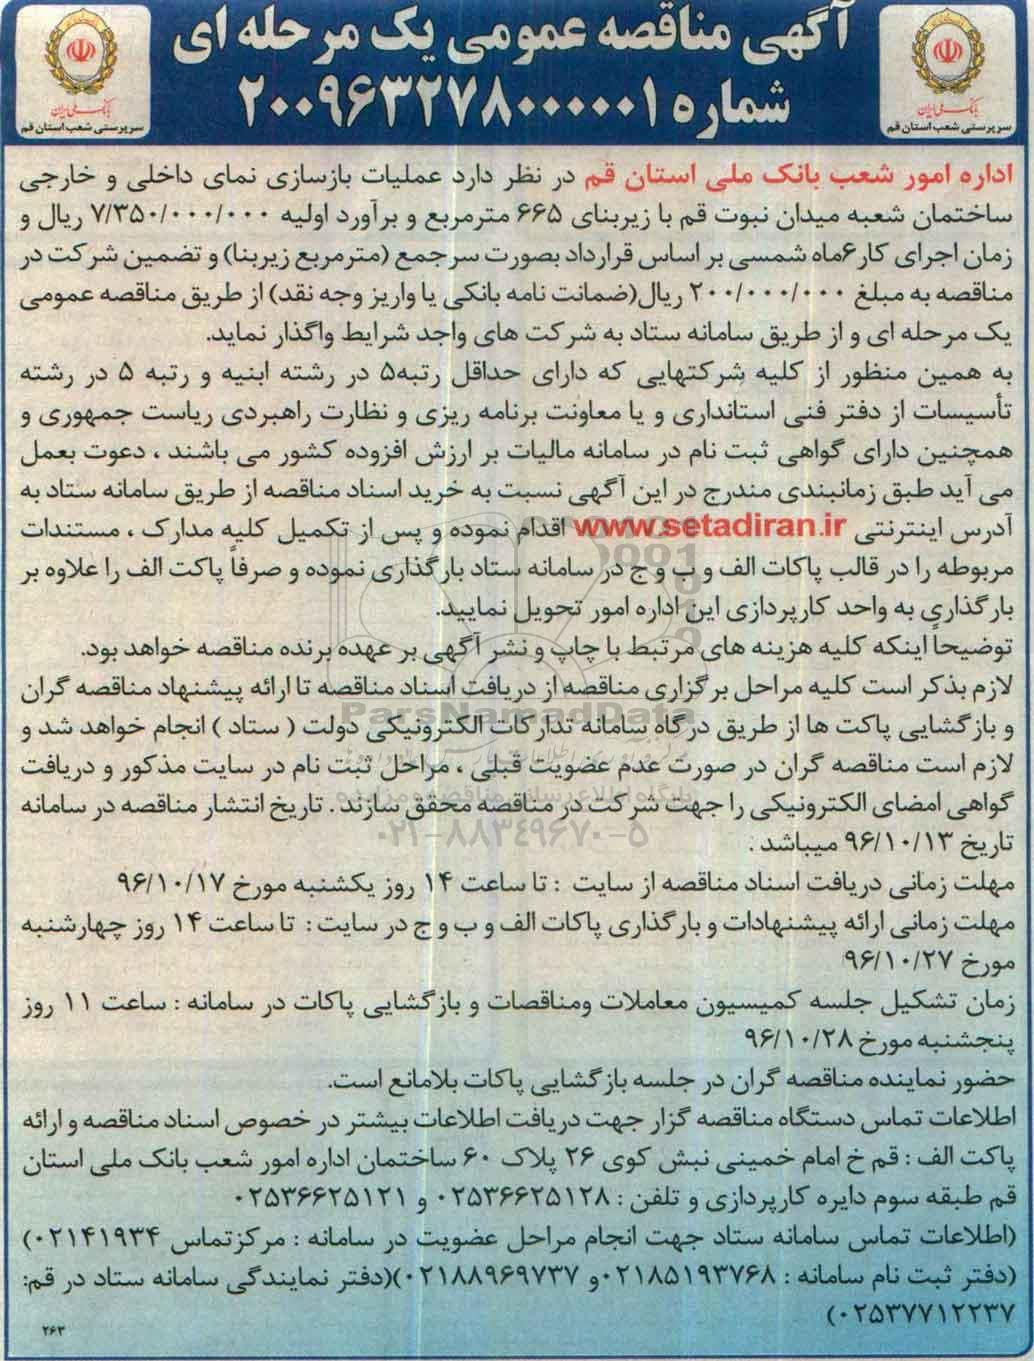 آگهی مناقصه عمومی یک مرحله ای
شماره ۲۰۰۹۶۳۲۷۸۰۰۰۰۰۱
بانک ملی ایران
سرپرستی شعب استان قم
بانک ملی ایران
سرپرستی شعب استان قم
اداره امور شعب بانک ملی استان قم در نظر دارد عملیات بازسازی نمای داخلی و خارجی
ساختمان شعبه میدان نبوت قم با زیربنای ۶۶۵ مترمربع و برآورد اولیه ۷/۳۵۰/۰۰۰/۰۰۰ ریال و
زمان اجرای کار۶ماه شمسی بر اساس قرارداد بصورت سرجمع (مترمربع زیربنا) و تضمین شرکت در
مناقصه به مبلغ ۲۰۰/۰۰۰/۰۰۰ ریال(ضمانت نامه بانکی یا واریز وجه نقد) از طریق مناقصه عمومی
یک مرحله ای و از طریق سامانه ستاد به شرکت های واجد شرایط واگذار نماید.
به همین منظور از کلیه شرکتهایی که دارای حداقل رتبه۵ در رشته ابنیه و رتبه ۵ در رشته
تأسیسات از دفتر فنی استانداری و یا معاونت برنامه ریزی و نظارت راهبردی ریاست جمهوری و
همچنین دارای گواهی ثبت نام در سامانه مالیات بر ارزش افزوده کشور می باشند ، دعوت بعمل
می آید طبق زمانبندی مندرج در این آگهی نسبت به خرید اسناد مناقصه از طریق سامانه ستاد به
آدرس اینترنتی www.setadiran.ir اقدام نموده و پس از تکمیل کلیه مدارک ، مستندات
مربوطه را در قالب پاکات الف و ب و ج در سامانه ستاد بارگذاری نموده و صرفاً پاکت الف را علاوه بر
بارگذاری به واحد کارپردازی این اداره امور تحویل نمایید.
توضیحاً اینکه کلیه هزینه های مرتبط با چاپ و نشر آگهی بر عهده برنده مناقصه خواهد بود.
لازم بذکر است کلیه مراحل برگزاری مناقصه از دریافت اسناد مناقصه تا ارائه پیشنهاد مناقصه گران
و بازگشایی پاکت ها از طریق درگاه سامانه تدارکات الکترونیکی دولت ( ستاد ) انجام خواهد شد و
لازم است مناقصه گران در صورت عدم عضویت قبلی ، مراحل ثبت نام در سایت مذکور و دریافت
گواهی امضای الکترونیکی را جهت شرکت در مناقصه محقق سازند . تاریخ انتشار مناقصه در سامانه
تاریخ ۹۶/۱۰/۱۳ میباشد :
مهلت زمانی دریافت اسناد مناقصه از سایت : تا ساعت ۱۴ روز یکشنبه مورخ ۹۶/۱۰/۱۷
مهلت زمانی ارائه پیشنهادات و بارگذاری پاکات الف و ب و ج در سایت : تا ساعت ۱۴ روز چهارشنبه
مورخ ۹۶/۱۰/۲۷
زمان تشکیل جلسه کمیسیون معاملات ومناقصات و بازگشایی پاکات در سامانه : ساعت ۱۱ روز
پنجشنبه مورخ ۹۶/۱۰/۲۸
حضور نماینده مناقصه گران در جلسه بازگشایی پاکات بلامانع است.
اطلاعات تماس دستگاه مناقصه گزار جهت دریافت اطلاعات بیشتر در خصوص اسناد مناقصه و ارائه
پاکت الف : قم خ امام خمینی نبش کوی ۲۶ پلاک ۶۰ ساختمان اداره امور شعب بانک ملی استان
قم طبقه سوم دایره کارپردازی و تلفن : ۰۲۵۳۶۶۲۵۱۲۸ و ۰۲۵۳۶۶۲۵۱۲۱
(اطلاعات تماس سامانه ستاد جهت انجام مراحل عضویت در سامانه : مرکزتماس ۰۲۱۴۱۹۳۴)
(دفتر ثبت نام سامانه : ۰۲۱۸۵۱۹۳۷۶۸و ۰۲۱۸۸۹۶۹۷۳۷)(دفتر نمایندگی سامانه ستاد در قم:
۰۲۵۳۷۷۱۲۲۳۷)
۲۶۳
ParsNamadData
پایگاه اطلاع رسانی مناقصه و مزایده
۰۲۱-۸۸۳۴۹۶۷۰-۵